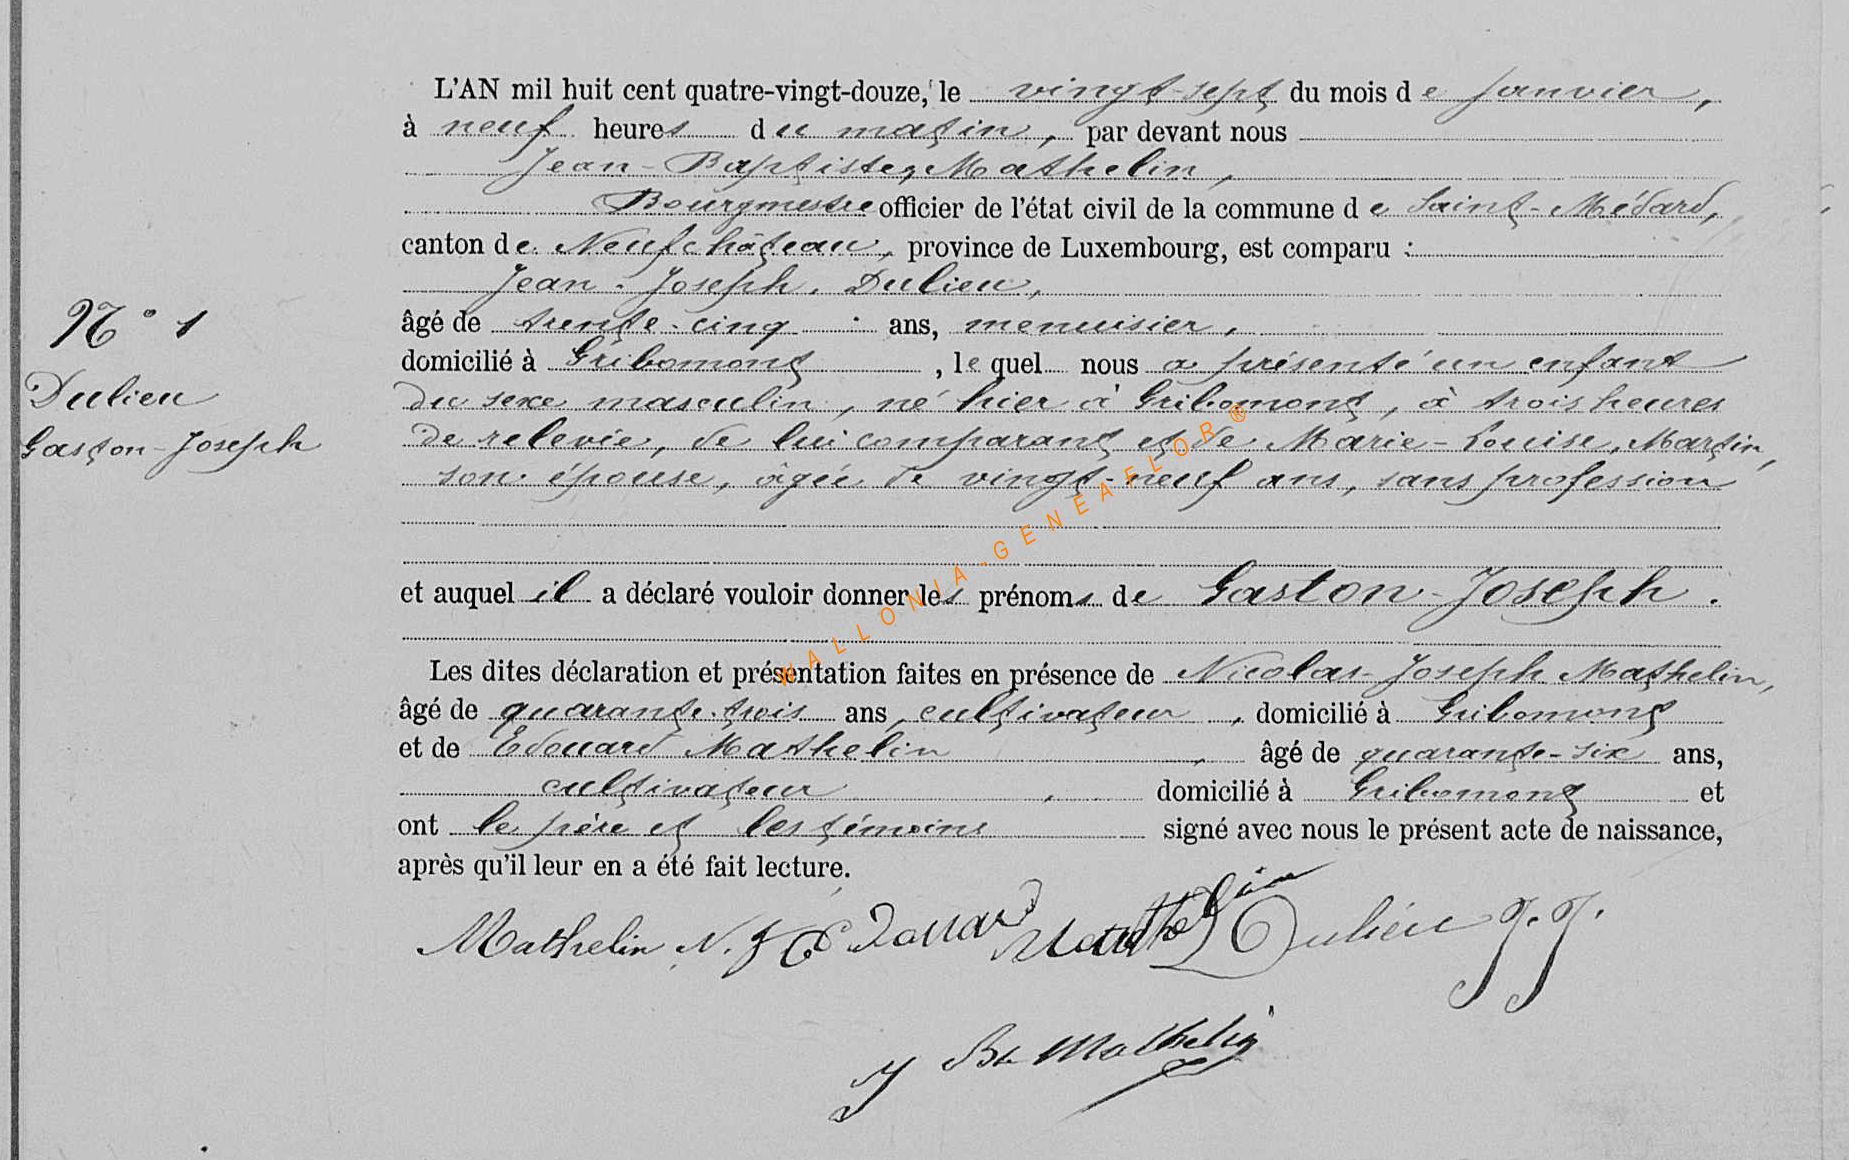 L'AN mil huit cent quatre-vingt-douze, le vingt-sept du mois de Janvier,
à neuf heures du matin, par devant nous
Jean-Baptiste, Mathelin,
Bourgmestre officier de l'état civil de la commune de Saint-Médard,
canton de Neufchâteau, province de Luxembourg, est comparu :
Jean-Joseph, Dulieu,
N° 1
âgé de trente-cinq ans, menuisier,
domicilié à Gribomont, lequel nous a présenté un enfant
Dulieu
du sexe masculin, né hier à Gribomont, à trois heures
Gaston-Joseph
de relevée, de lui comparant et de Marie-Louise, Martin,
son épouse, âgée de vingt-neuf ans, sans profession
et auquel il a déclaré vouloir donner les prénoms de Gaston-Joseph.
Les dites déclaration et présentation faites en présence de Nicolas-Joseph Mathelin,
âgé de quarante-trois ans, cultivateur, domicilié à Gribomont
et de Edouard Mathelin, âgé de quarante-six ans,
cultivateur, domicilié à Gribomont et
ont le père et les témoins signé avec nous le présent acte de naissance,
après qu'il leur en a été fait lecture.
Mathelin N. J. Edouard Mathelin Dulieu J. J.
J Bte Mathelin
WALLONIA-GENEAFLOR®